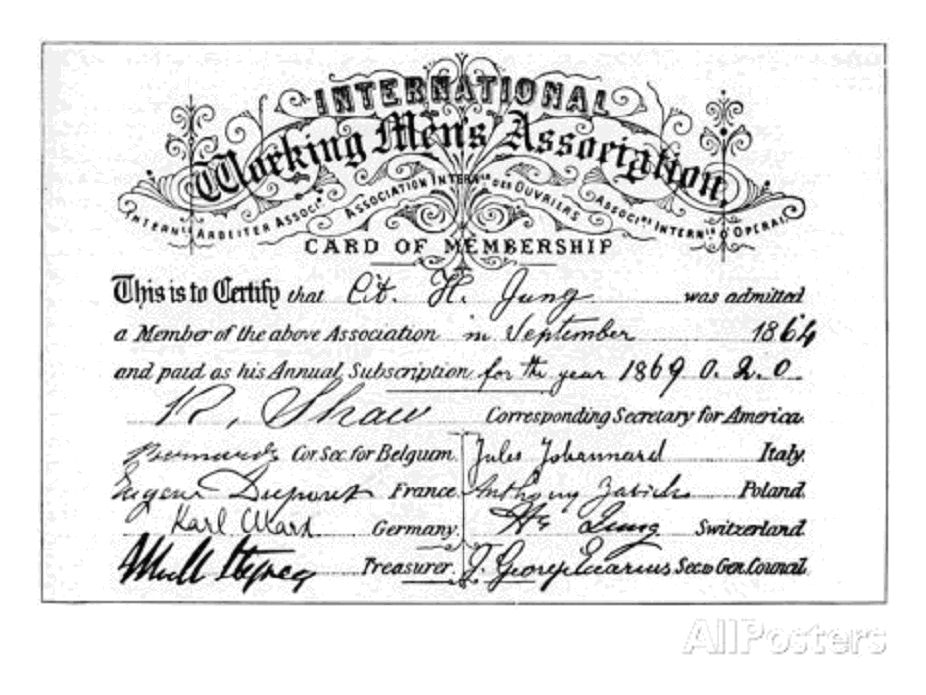 INTERNATIONAL
Working Men's Association
INTERNle ARBEITER ASSOCn ASSOCIATION INTERNle DES OUVRIERS ASSOCIne INTERNle D'OPERAI
CARD OF MEMBERSHIP
This is to Certify that Cit. H. Jung was admitted
a Member of the above Association in September 1864
and paid as his Annual Subscription for the year 1869 0. 2. 0
R. Shaw Corresponding Secretary for America.
Bernard Cor. Sec. for Belgium. Jules Johannard Italy.
Eugene Dupont France. Anthony Zabicki Poland.
Karl Marx Germany. H. Jung Switzerland
Treasurer. J. George Eccarius Sec to Gen. Council.
AllPosters